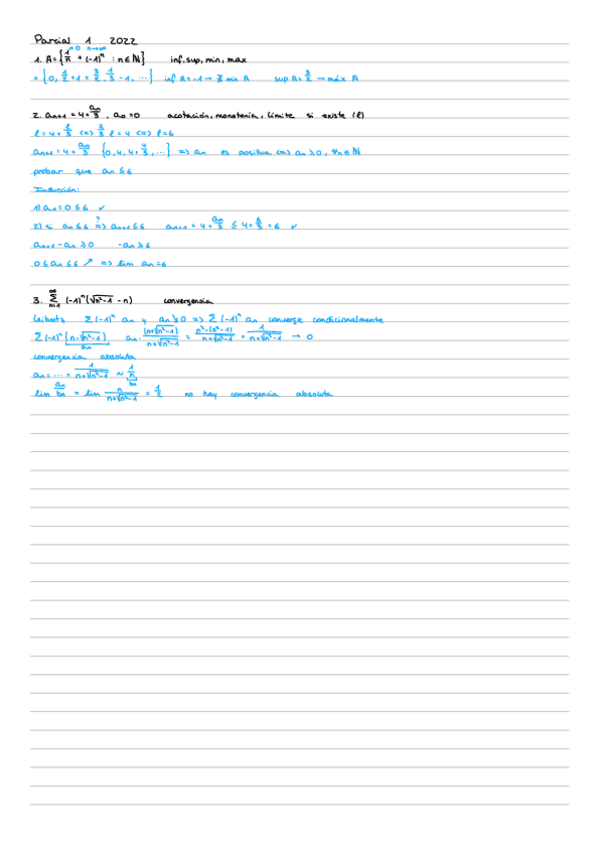 Parcial 1 2022
n=0 n→∞
1. A = {1/n + (-1)^n : n ∈ ℕ} inf, sup, min, max
= {0, 1/2 + 1 = 3/2, 1/3 - 1, ...} inf A = -1 → ∄ min A sup A = 3/2 → máx A
2. an+1 = 4 + an/3, a0 = 0 acotación, monotonía, límite si existe (ℓ)
ℓ = 4 + ℓ/3 <=> 2/3 ℓ = 4 <=> ℓ = 6
an+1 = 4 + an/3 {0, 4, 4 + 4/3, ...} => an es positiva <=> an ≥ 0, ∀n ∈ ℕ
probar que an ≤ 6
Inducción:
1) a0 = 0 ≤ 6 ✓
2) si an ≤ 6 ?=> an+1 ≤ 6 an+1 = 4 + an/3 ≤ 4 + 6/3 = 6 ✓
an+1 - an ≥ 0 -an ≥ 6
0 ≤ an ≤ 6 ↗ => lim an = 6
3. ∞Σn=1 (-1)^n (√(n²-1) - n) convergencia
Leibnitz Σ(-1)^n an y an ≥ 0 => Σ(-1)^n an converge condicionalmente
Σ(-1)^n (n - √(n²-1)) an · (n+√(n²-1))/(n+√(n²-1)) = (n² - (n²-1))/(n+√(n²-1)) = 1/(n+√(n²-1)) → 0
an
convergencia absoluta
an = ... = 1/(n+√(n²-1)) ≈ 1/n
bn
lim an/bn = lim n/(n+√(n²-1)) = 1/2 no hay convergencia absoluta